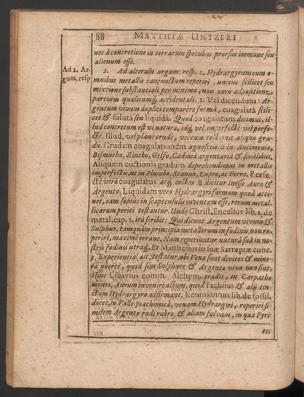 88 MATTHIÆ UNTZERI
nec à concretione in terrarum specubus prorsus immune seu
alienum esse.
Ad 2. Ar-
gum. resp.
2. Ad alterum argum: resp. 1. Hydrargyrum cum
omnibus metallis conjunctum reperiri, unione scilicet seu
mixtione substantiali per minima, non verò
partium qualicunq; accidentali. 2. Vel dicendum:
Argentum vivum duplici comparere formâ, coagulatâ scili-
cet & solutâ seu liquidâ. Quod coagulatum dicimus, il-
lud concretum est vi naturæ, idq; vel imperfectè vel perfe-
ctè. Illud, vel planè crudè, vel cum aliquo gra-
du. Crudam coagulationem agnoscimus in Antimonio,
Bismutho, Zincko, Cadmia argentaria & similibus.
Aliquem coctionis gradum deprehendimus in metallis
imperfectis, ut in Plumbo, Stanno, Cupro, ac Ferro. Perfe-
ctè verò coagulatum dicitur in Auro &
Argento. Liquidam verò Hydrargyri formam quod atti-
net, eam sæpius in scaptensulis inventam esse, rerum metal-
licarum periti testantur. Unde Christ. Encelius lib. 1. de
metal. cap. 1. ita scribit: Qui dicunt Argentum vivum &
Sulphur, tanquam principia metallorum in fodinis non re-
periri, maximè errant. Nam reperiuntur nativa sub in no-
stris fodinis utraq;. Et Matthesius in suæ Sareptæ conc.
3. Experientia (ait) testatur, ubi Venæ sunt divites & mine-
ra, quod sine Sulphure & Argento vivo non sint.
Hinc Libavius comm. Alchym. in Carpatho
monte, Aurum inveniri album, quod Paduanus & alij tin-
ctum Hydrargyro adfirmant. Kentmannus lib. de fossil.
docet, in Valle Joachimica, venam Hydrargiri, reperiri si-
milem Argento rudi rubro, & aliam fulvam, in qua Pyri-
tes